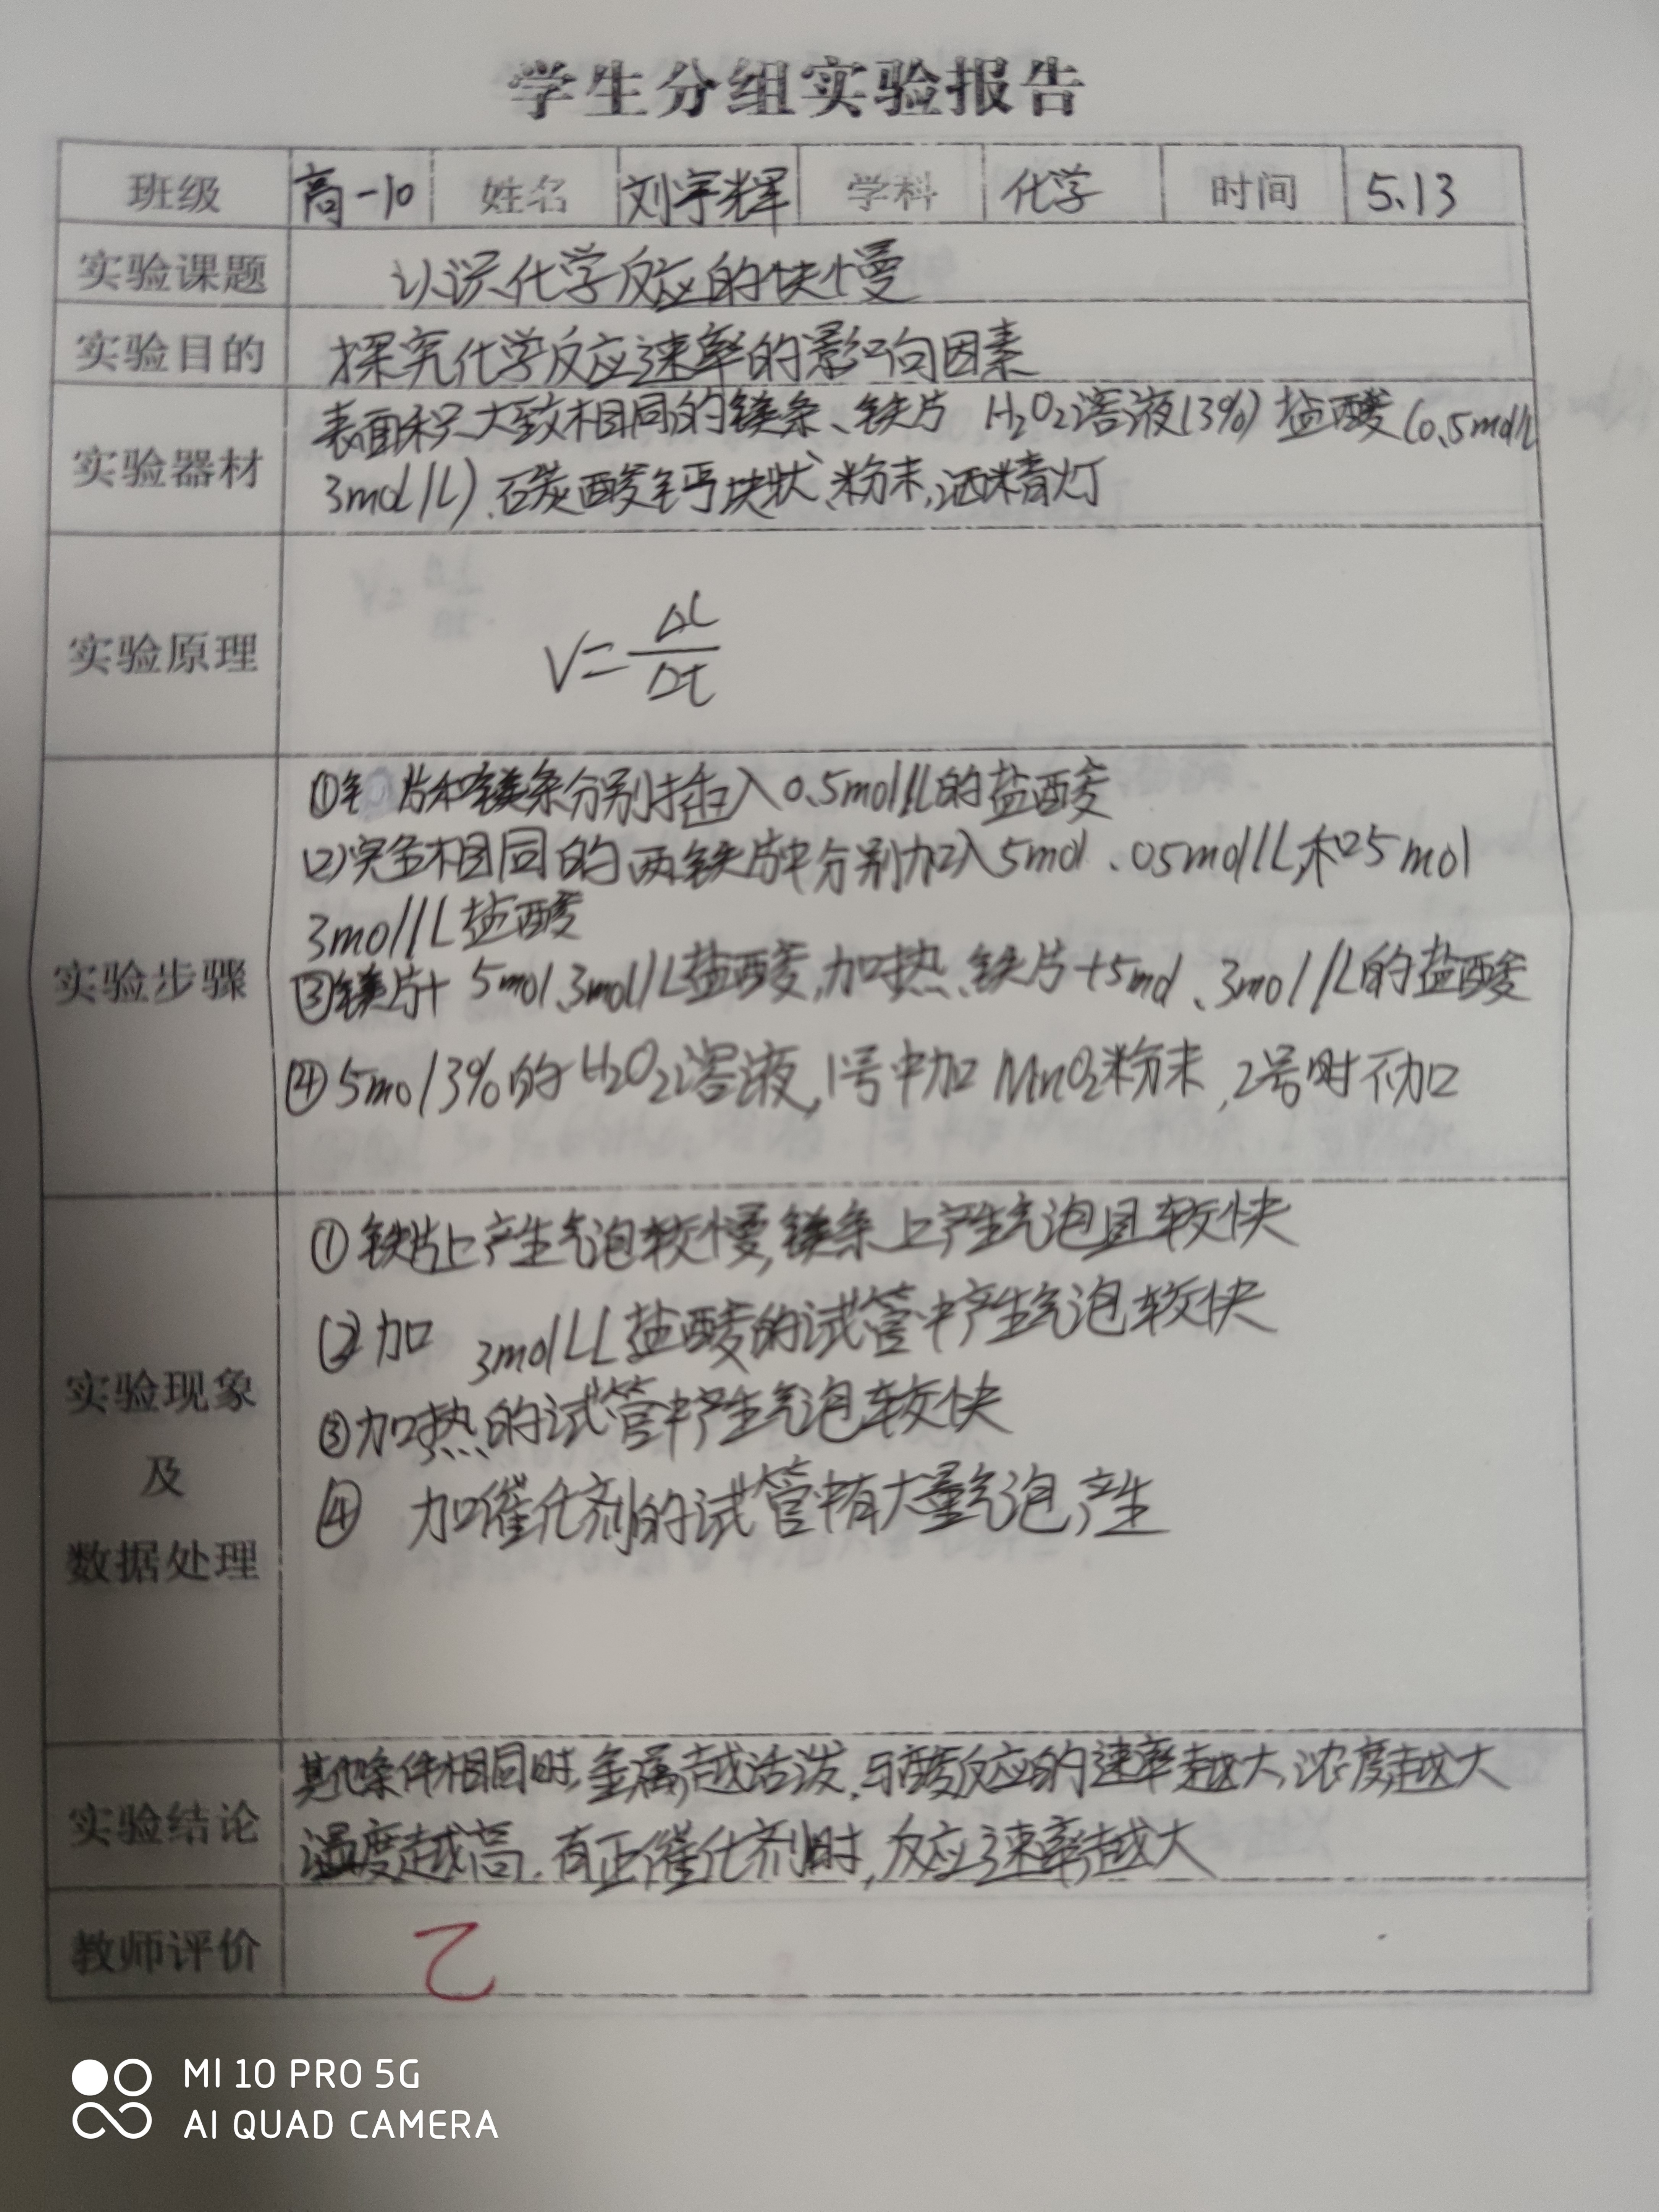 学生分组实验报告
班级 高一10 姓名 刘宇辉 学科 化学 时间 5.13
实验课题 认识化学反应的快慢
实验目的 探究化学反应速率的影响因素
实验器材 表面积大致相同的镁条、铁片 H₂O₂溶液(3%) 盐酸(0.5mol/L
3mol/L).碳酸钙块状、粉末,酒精灯
实验原理 V=Δc/Δt
实验步骤
①片和镁条分别插入0.5mol/L的盐酸
(2)完全相同的两铁片中分别加入5mol、05mol/L,和5mol
3mol/L盐酸
③镁片+5mol、3mol/L盐酸,加热、铁片+5mol、3mol/L的盐酸
④5mol3%的H₂O₂溶液,1号中加MnO₂粉末,2号时不加
实验现象
及
数据处理
①铁片上产生气泡较慢,镁条上产生气泡且较快
(2)加 3mol/L盐酸的试管中产生气泡较快
③加热的试管中产生气泡较快
④ 加催化剂的试管中有大量气泡产生
实验结论 其他条件相同时,金属越活泼,与酸反应的速率越大,浓度越大
温度越高.有正催化剂时,反应速率越大
教师评价 乙
MI 10 PRO 5G
AI QUAD CAMERA